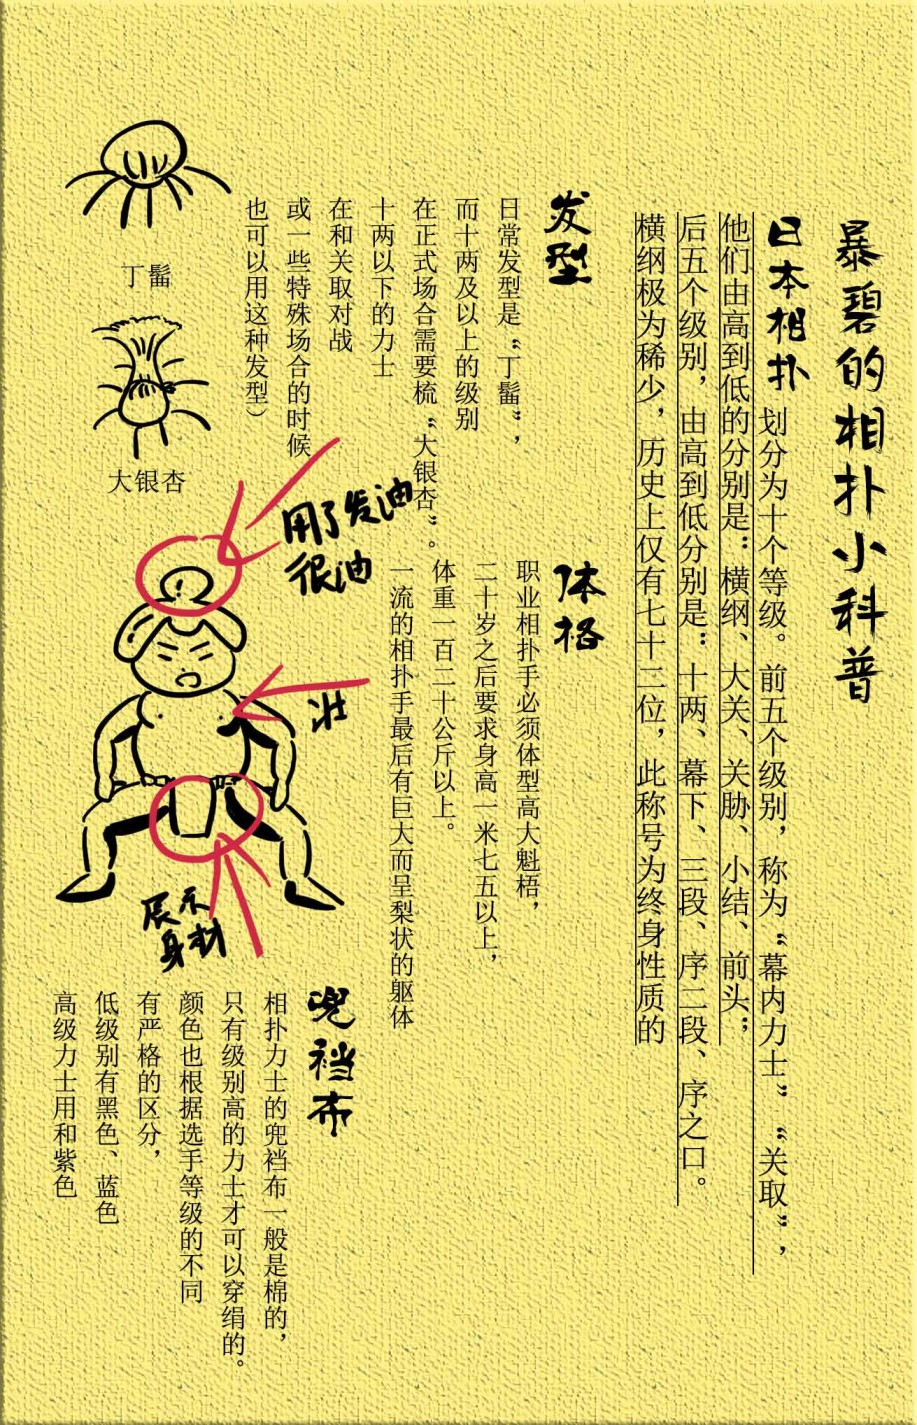 暴碧的相扑小科普
日本相扑 划分为十个等级。前五个级别，称为“幕内力士”“关取”，
他们由高到低的分别是：横纲、大关、关胁、小结、前头；
后五个级别，由高到低分别是：十两、幕下、三段、序二段、序之口。
横纲极为稀少，历史上仅有七十二位，此称号为终身性质的
发型
日常发型是“丁髷”，
而十两及以上的级别
在正式场合需要梳“大银杏”。
十两以下的力士
在和关取对战
或一些特殊场合的时候
也可以用这种发型）
丁髷
大银杏
体格
职业相扑手必须体型高大魁梧，
二十岁之后要求身高一米七五以上，
体重一百二十公斤以上。
一流的相扑手最后有巨大而呈梨状的躯体
用了发油
很油
壮
展示
身材
兜裆布
相扑力士的兜裆布一般是棉的，
只有级别高的力士才可以穿绢的。
颜色也根据选手等级的不同
有严格的区分，
低级别有黑色、蓝色
高级力士用和紫色